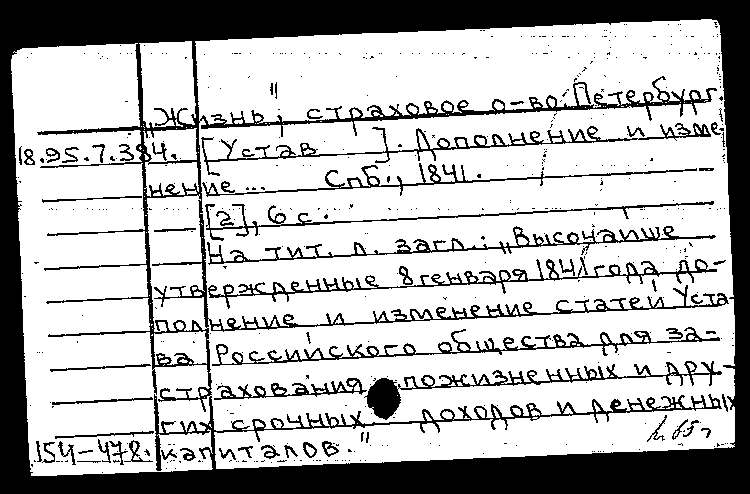 „Жизнь“, страховое о-во. Петербург.
18.95.7.384. [Устав ]. Дополнение и изме-
нение... Спб., 1841.
[2], 6 с.
На тит. л. загл.: „Высочайше
утвержденные 8 генваря 1841 года до-
полнение и изменение статей Уста-
ва Российского общества для за-
страхования пожизненных и дру-
гих срочных доходов и денежных
154-478. капиталов."